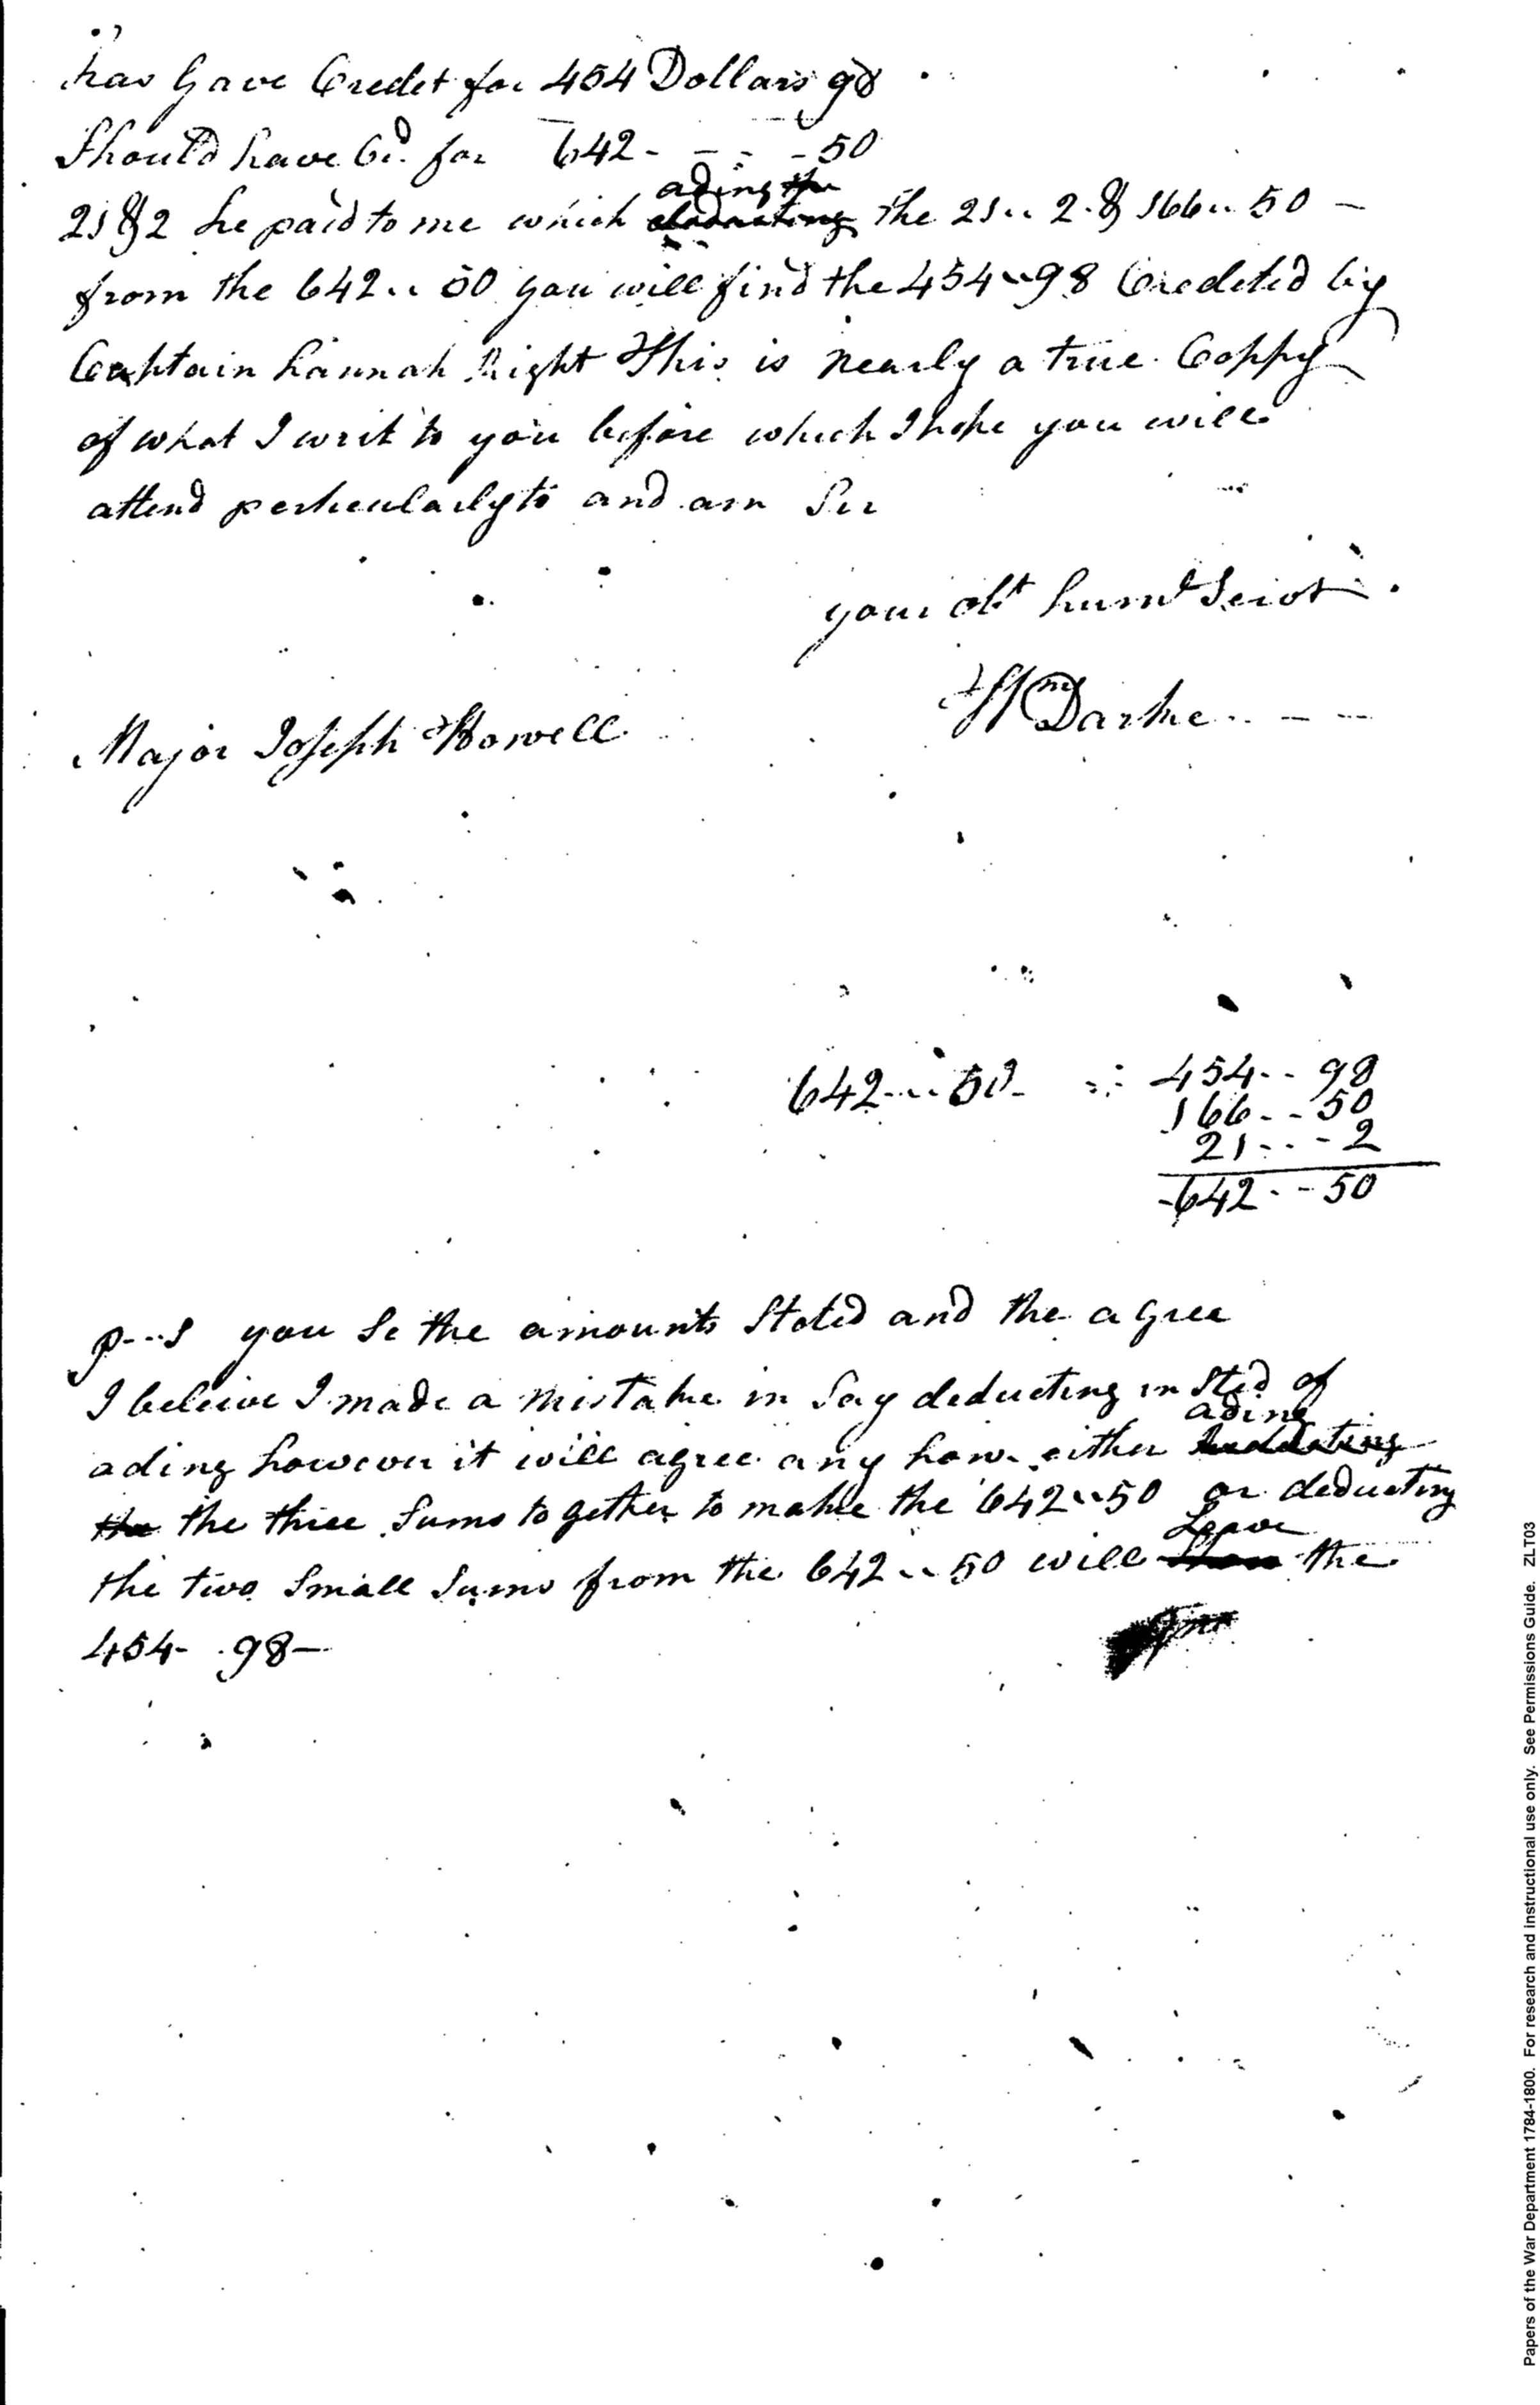 has Gave Credet for 454 Dollars 98
Should have Cr. for 642 - - - - 50
ading the
21 & 2 he paid to me which deducting the 21 .. 2 & 166 .. 50 -
from the 642 .. 50 you will find the 454 .. 98 Credeted by
Captain Hannah Right This is nearly a true Coppy
of what I writ to you before which I hope you will
attend perticularly to and am Sir
your obt humb Servt
Wm Darke .. - -
Major Joseph Howell
642 .. .. 50 - = 454 - - 98
166 - - 50
21 - - - 2
642 - - 50
p - - s you Se the amounts Stated and the agree
I beleive I made a mistake in Say deducting in Sted of
ading
ading however it will agree any how either deducting
the the three Sums together to make the 642 .. 50 or deducting
Leave
the two Small Sums from the 642 .. 50 will the
454 - 98 -
Papers of the War Department 1784-1800. For research and instructional use only. See Permissions Guide. ZLT03